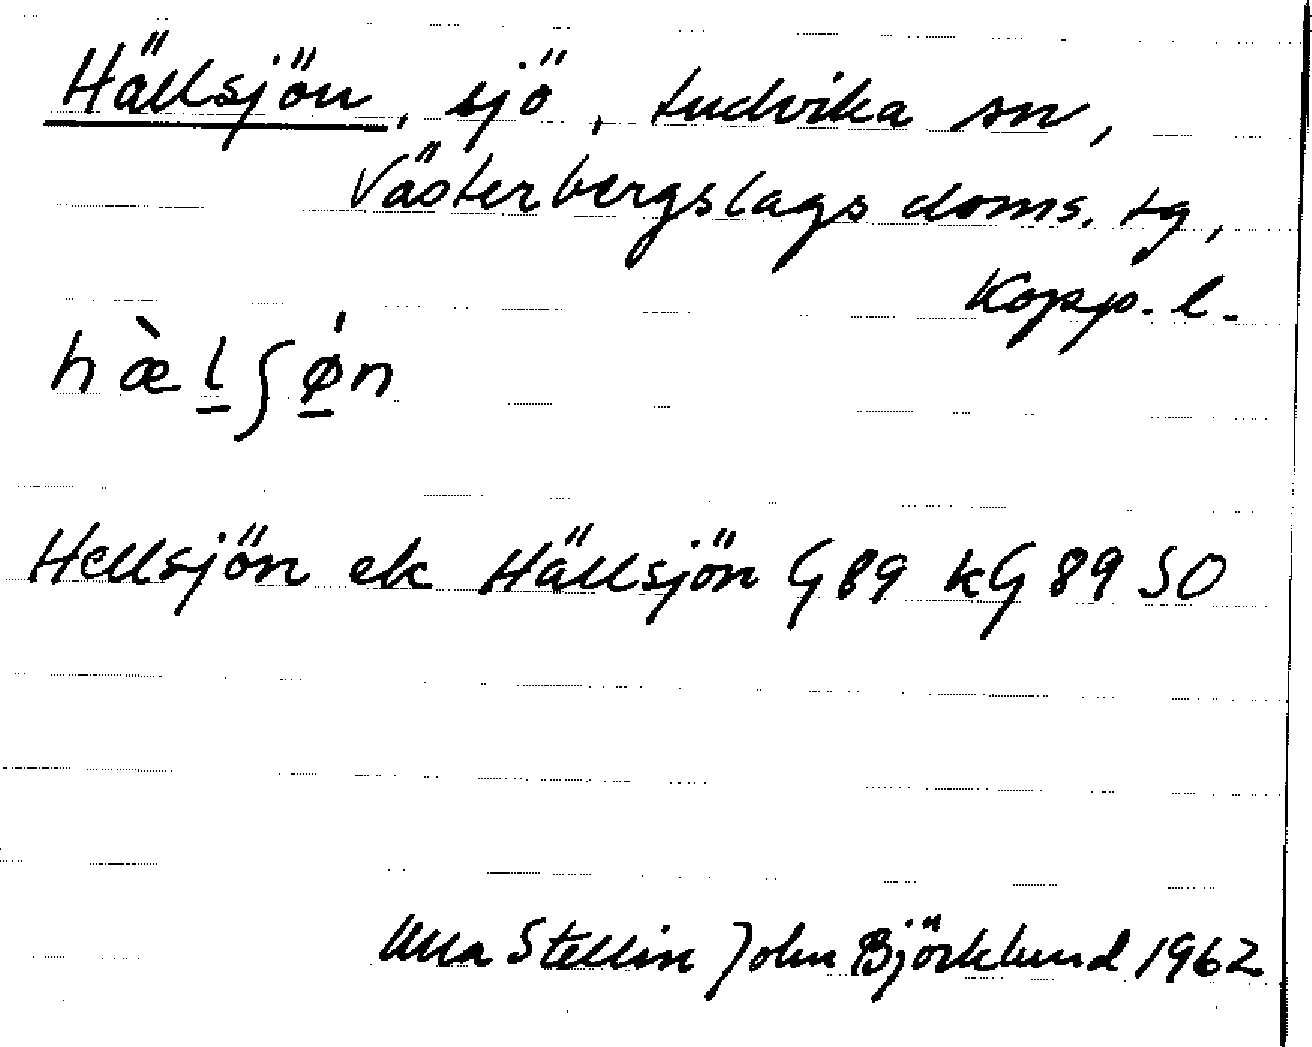 Hällsjön, sjö, Ludvika sn,
Västerbergslags doms. tg,
Kopp. l.
hæ̀l̲ʃǿ̲n
Hellsjön ek Hällsjön G 89 kG 89 SO
Ulla Stellin John Björklund 1962